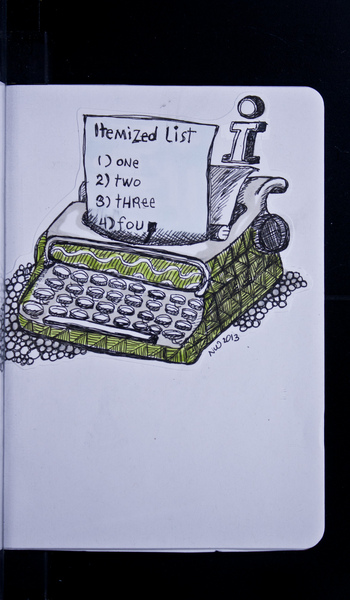 i
Itemized List
1) one
2) two
3) three
4) fou
NW 2013